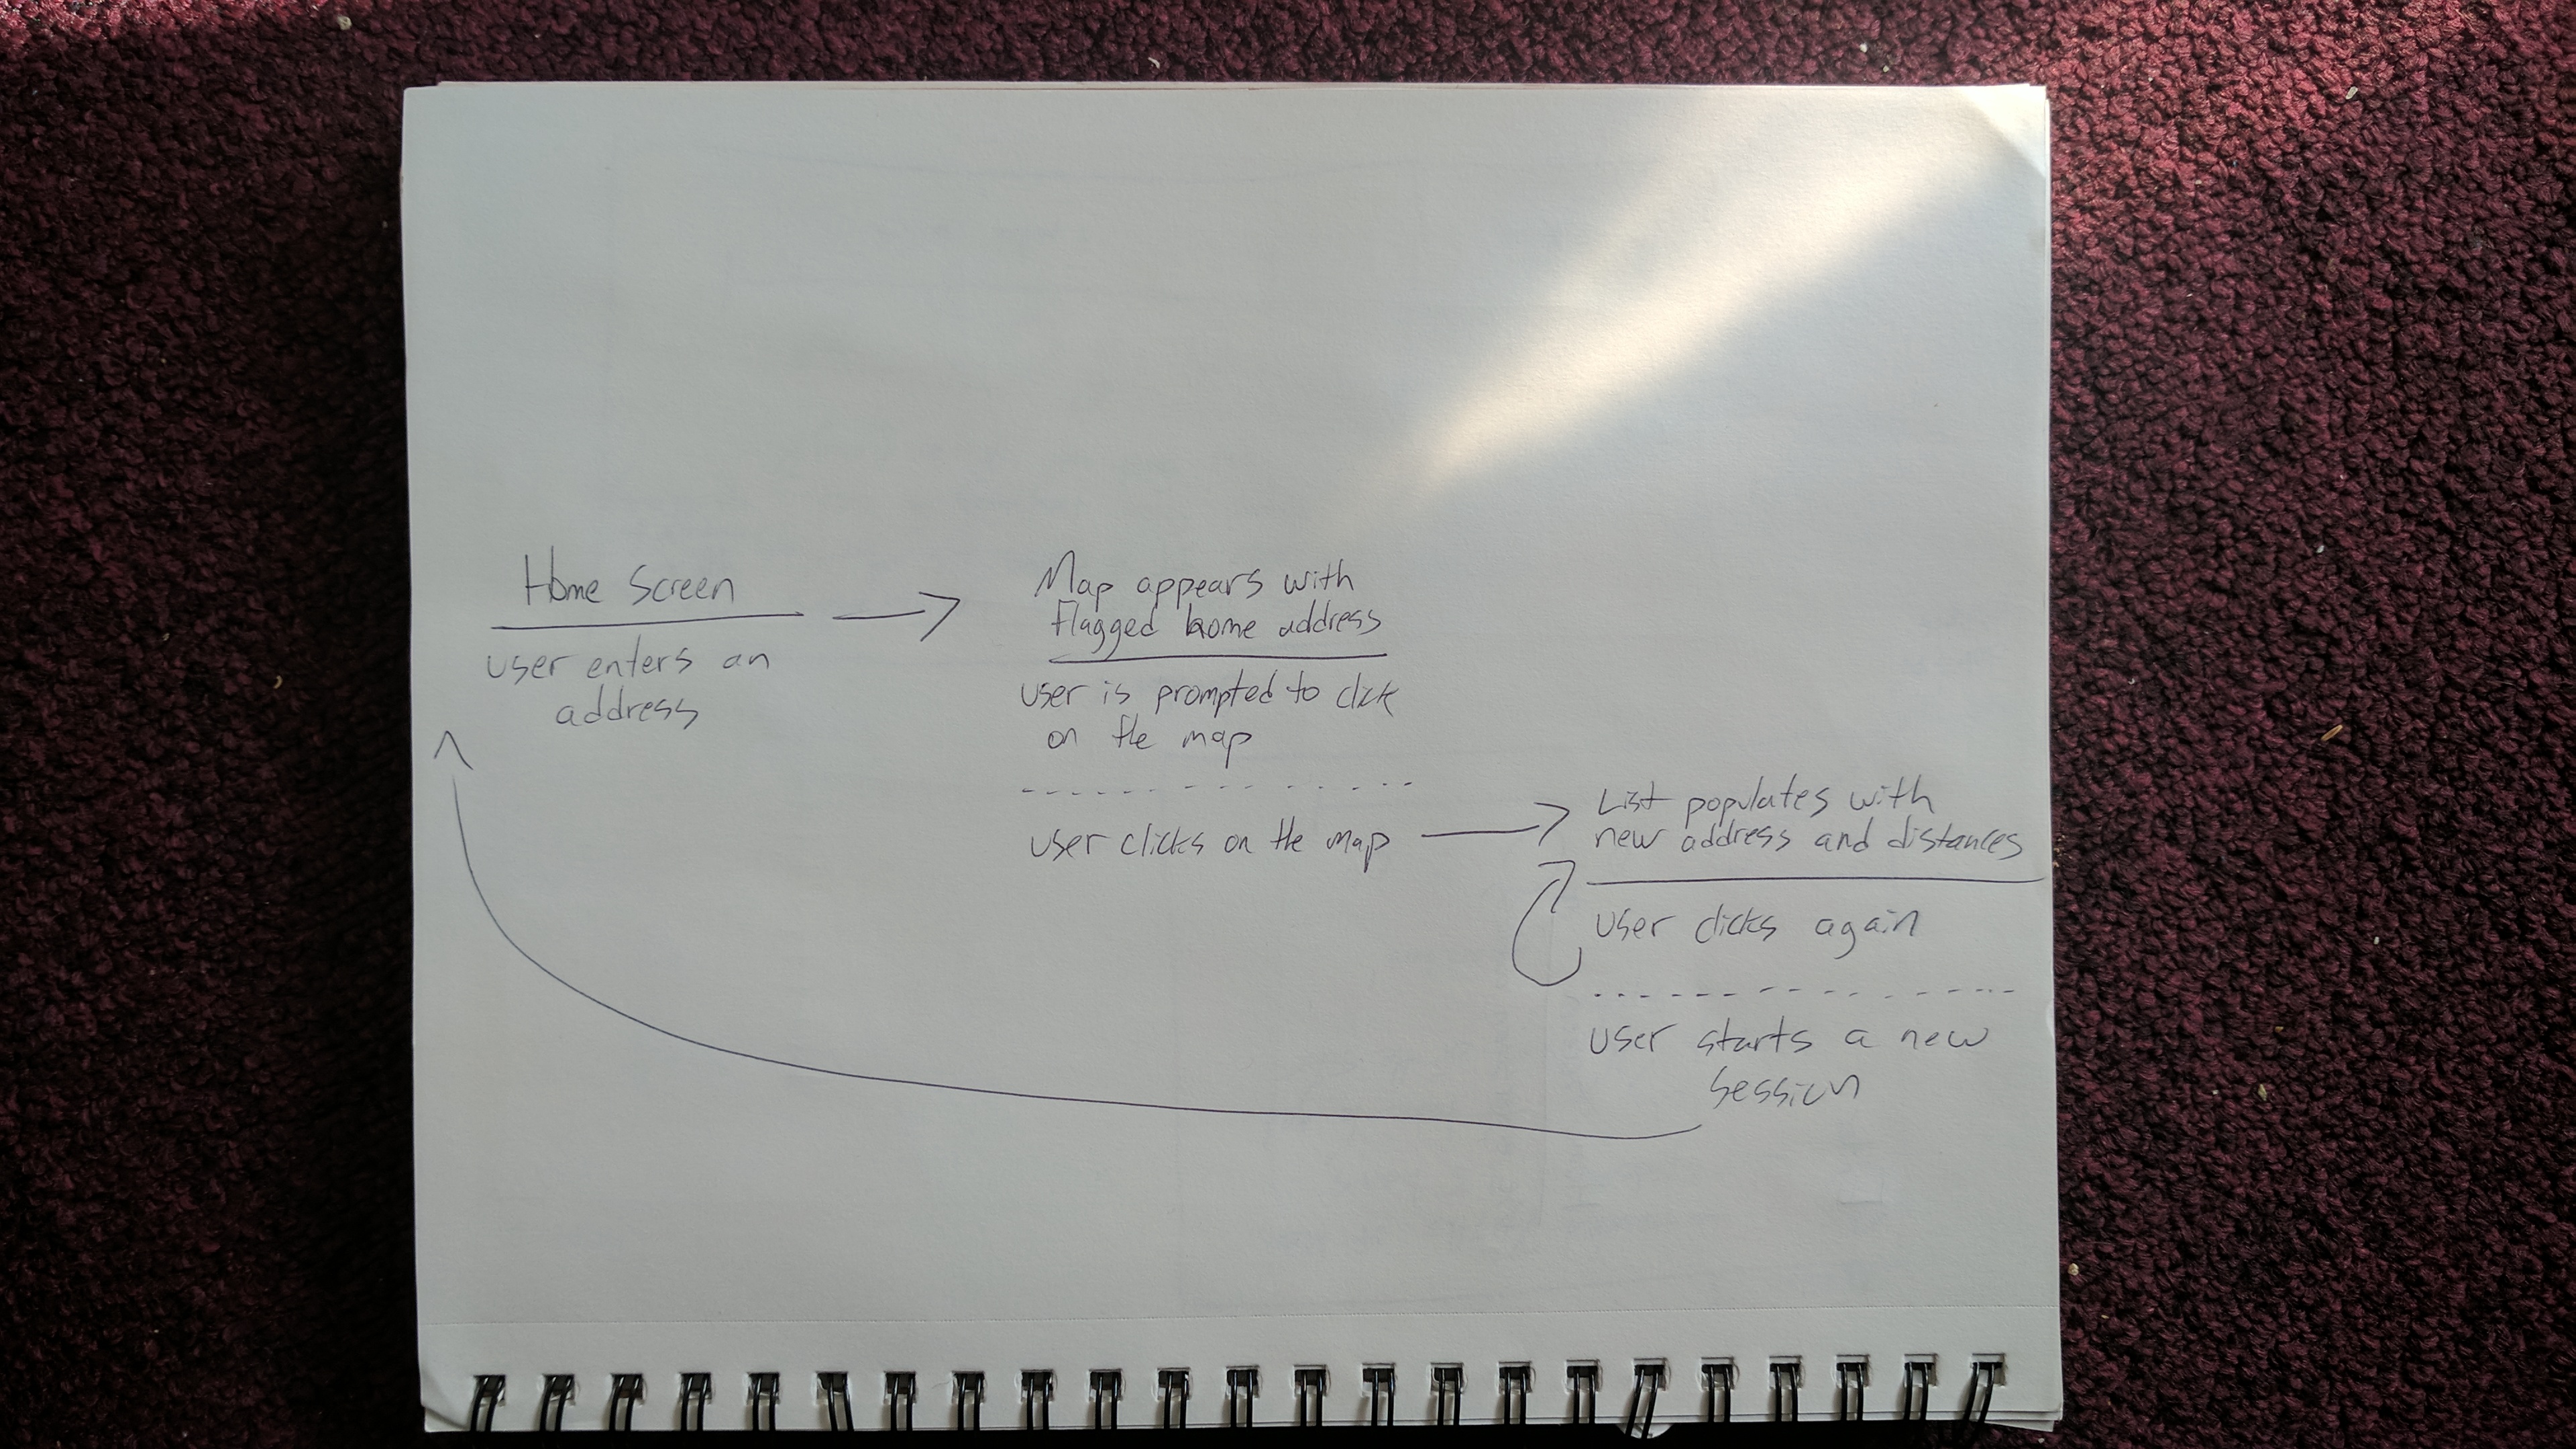 Home Screen
user enters an
address
Map appears with
flagged home address
user is prompted to click
on the map
user clicks on the map
List populates with
new address and distances
user clicks again
user starts a new
session